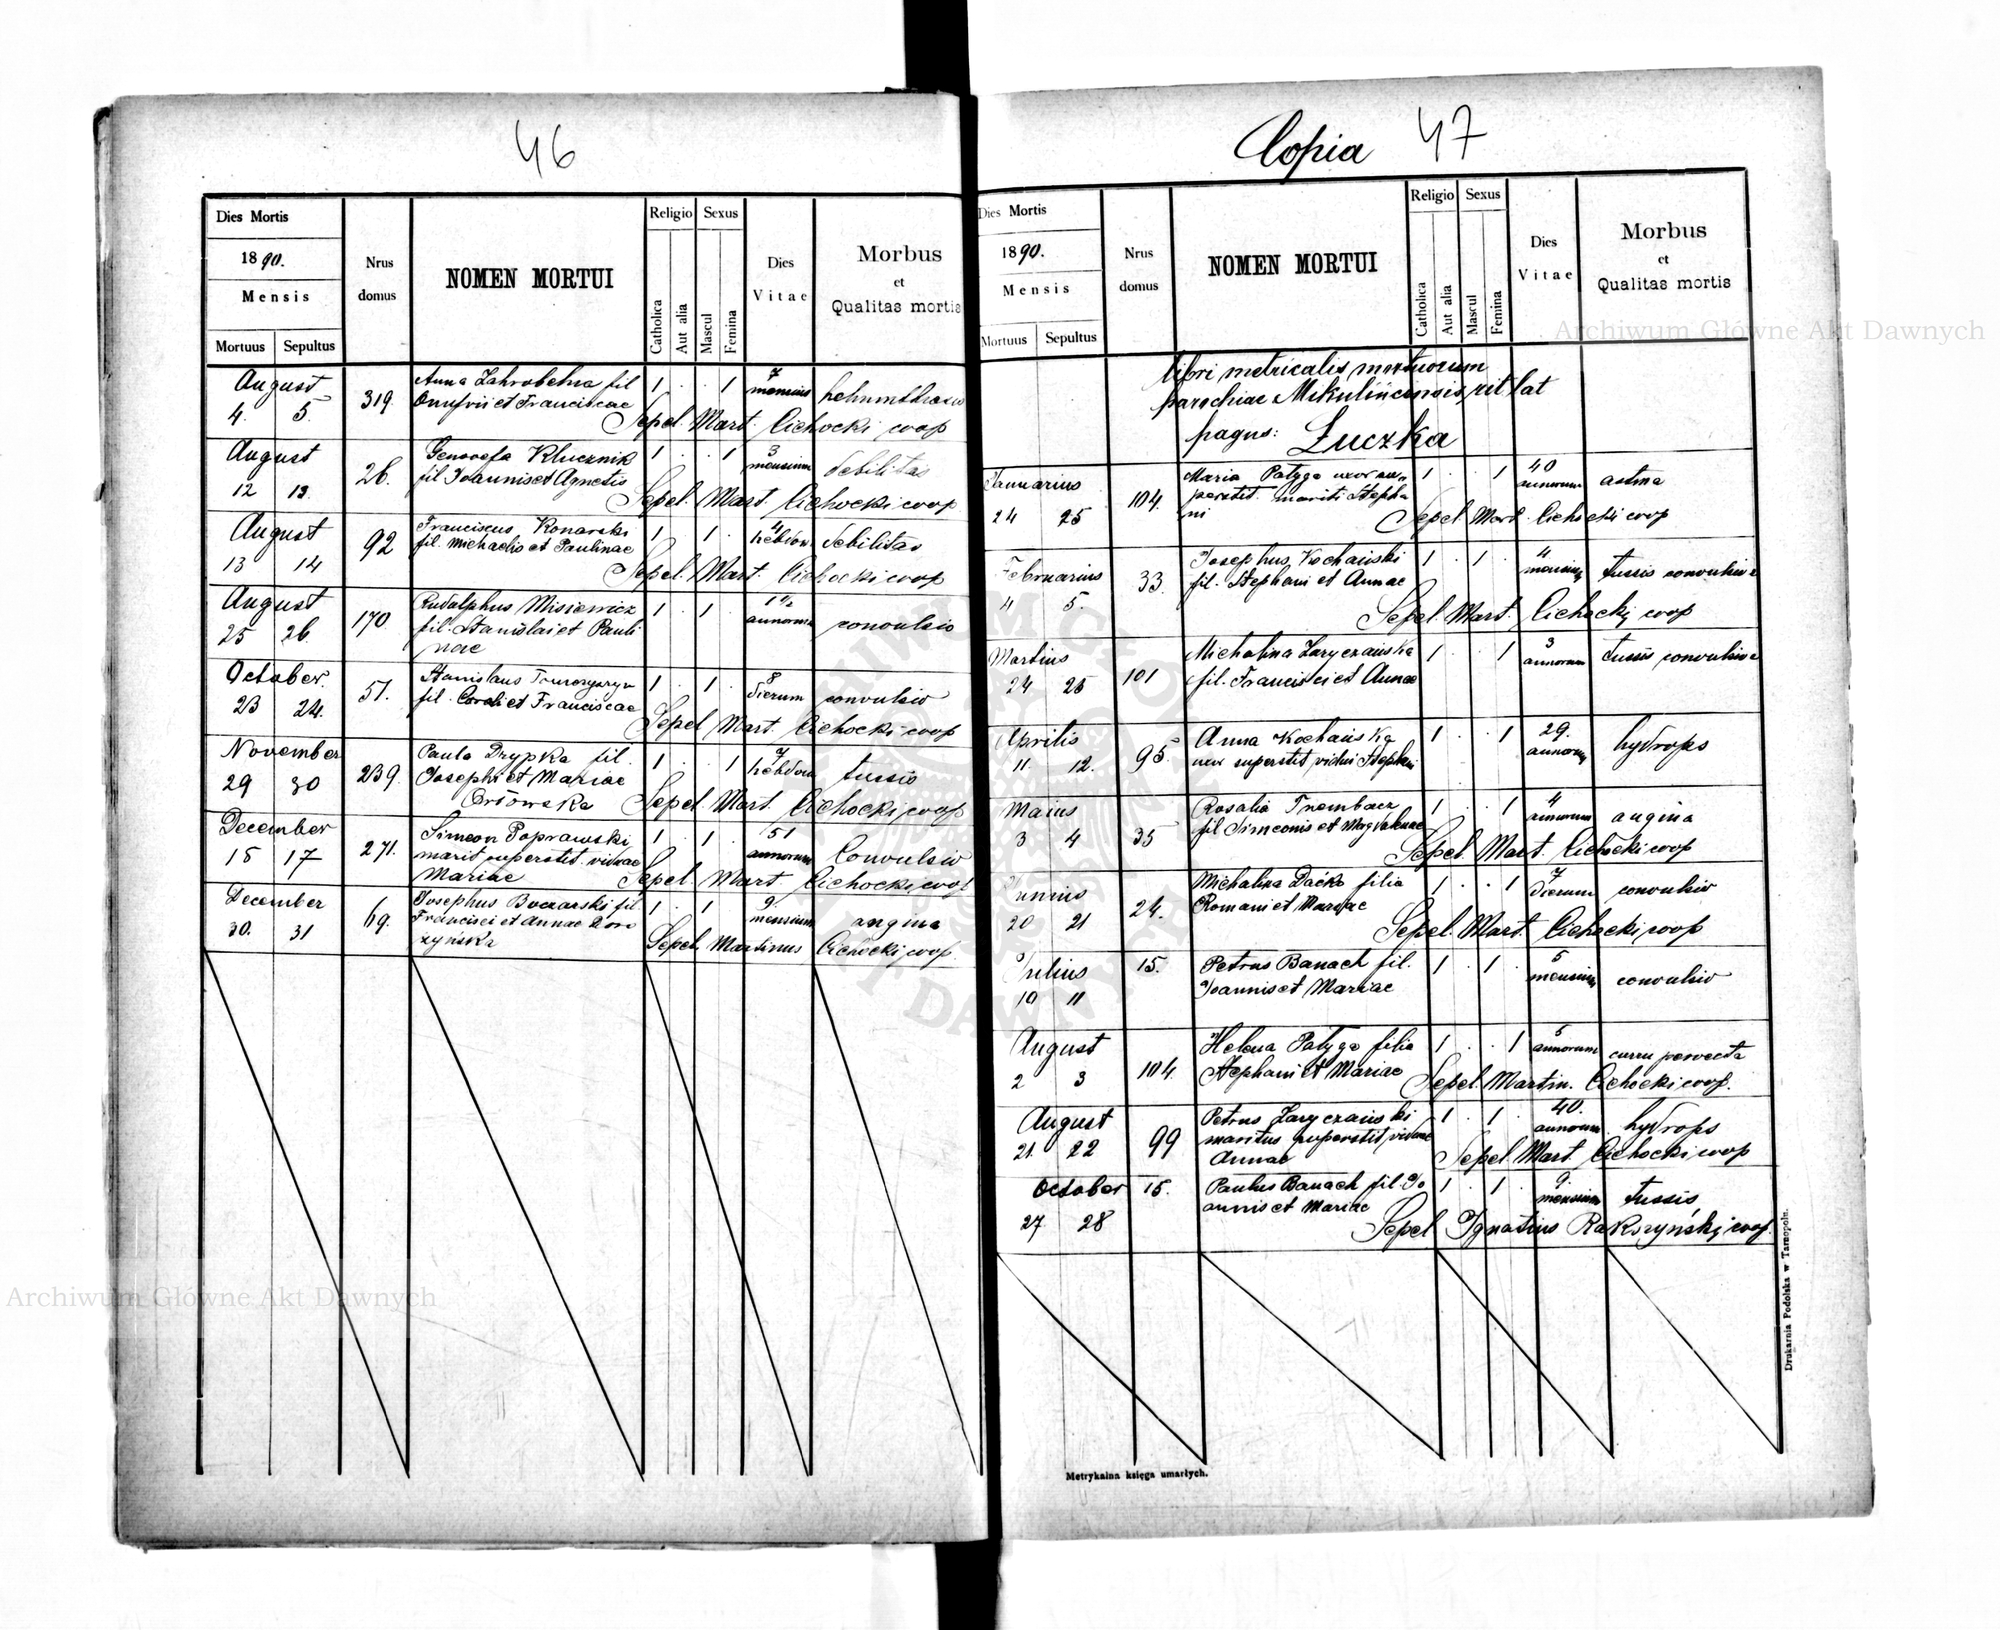 46
Dies Mortis
1890.
Mensis
Mortuus Sepultus
Nrus
domus
NOMEN MORTUI
Religio
Catholica
Aut alia
Sexus
Mascul
Femina
Dies
Vitae
Morbus
et
Qualitas mortis
August
4. 5
319.
Anna fil
Onufrii et Franciscae
1 . . 1
7
mensium
Sepel. Mart. Cichocki coop
August
12 13.
26.
Genovefa Klucznik
fil Joannis et Agnetis
1 . . 1
3
mensium
debilitas
Sepel. Mart. Cichocki coop
August
13 14
92
Franciscus Konarski
fil. Michaelis et Paulinae
1 . 1 .
4
hebdom
debilitas
Sepel. Mart. Cichocki coop
August
25 26
170
Rudolphus Misiewicz
fil. Stanislai et Pauli
nae
1 . 1
1 1/2
annorum
convulsio
October.
23 24.
51.
Stanislaus
fil. Caroli et Franciscae
1 . 1 .
8
dierum
convulsio
Sepel Mart. Cichocki coop
November
29 30
239.
Paula Drypka fil.
Josephi et Mariae
1 . . 1
7
hebdom
tussis
Sepel. Mart. Cichocki coop
December
15 17
271.
Simeon Poprawski
marit. superstit. viduae
Mariae
1 . 1 .
51
annorum
Convulsio
Sepel. Mart. Cichocki coop
December
30. 31
69.
Josephus Boczarski fil
Francisci et Annae Doro
żyńska
1 . 1 .
9.
mensium
angina
Sepel. Martinus Cichocki coop.
Copia 47
Dies Mortis
1890.
Mensis
Mortuus Sepultus
Nrus
domus
NOMEN MORTUI
Religio
Catholica
Aut alia
Sexus
Mascul
Femina
Dies
Vitae
Morbus
et
Qualitas mortis
libri metricalis mortuorum
parochiae Mikulińcensis rit lat
pagus: Łuczka
Januarius
24 25
104.
Maria Patyga uxor su
perstit. mariti Stepha
ni
1 . . 1
40
annorum
astma
Sepel. Mart. Cichocki coop
Februarius
4 5.
33.
Josephus Kochański
fil. Stephani et Annae
1 . 1 .
4
mensium
tussis convulsiva
Sepel. Mart. Cichocki coop
Martius
24 25
101
Michalina Zaryczańska
fil. Francisci et Annae
1 . . 1
3
annorum
tussis convulsiva
Aprilis
11 12.
95
Anna Kochańska
uxor superstit. vidui Stephani
1 . . 1
29.
annorum
hydrops
Maius
3 4
35
Rosalia Trembacz
fil Simeonis et Magdalenae
1 . . 1
4
annorum
angina
Sepel. Mart. Cichocki coop
Junius
20 21
24.
Michalina Daćko filia
Romani et Mariae
1 . . 1
7
dierum
convulsio
Sepel. Mart. Cichocki coop
Julius
10 11
15.
Petrus Banach fil.
Joannis et Mariae
1 . 1 .
5
mensium
convulsio
August
2 3
104.
Helena Patyga filia
Stephani et Mariae
1 . . 1
5
annorum
curru pervecta
Sepel. Martin. Cichocki coop.
August
21. 22
99
Petrus Zaryczański
maritus superstit. viduae
Annae
1 . 1 .
40.
annorum
hydrops
Sepel Mart. Cichocki coop
October
27 28
15.
Paulus Banach fil. Jo
annis et Mariae
1 . 1 .
9.
mensium
tussis
Sepel Ignatius Rakszyński coop.
Metrykalna księga umarłych.
Drukarnia Podolska w Tarnopolu.
Archiwum Główne Akt Dawnych
Archiwum Główne Akt Dawnych